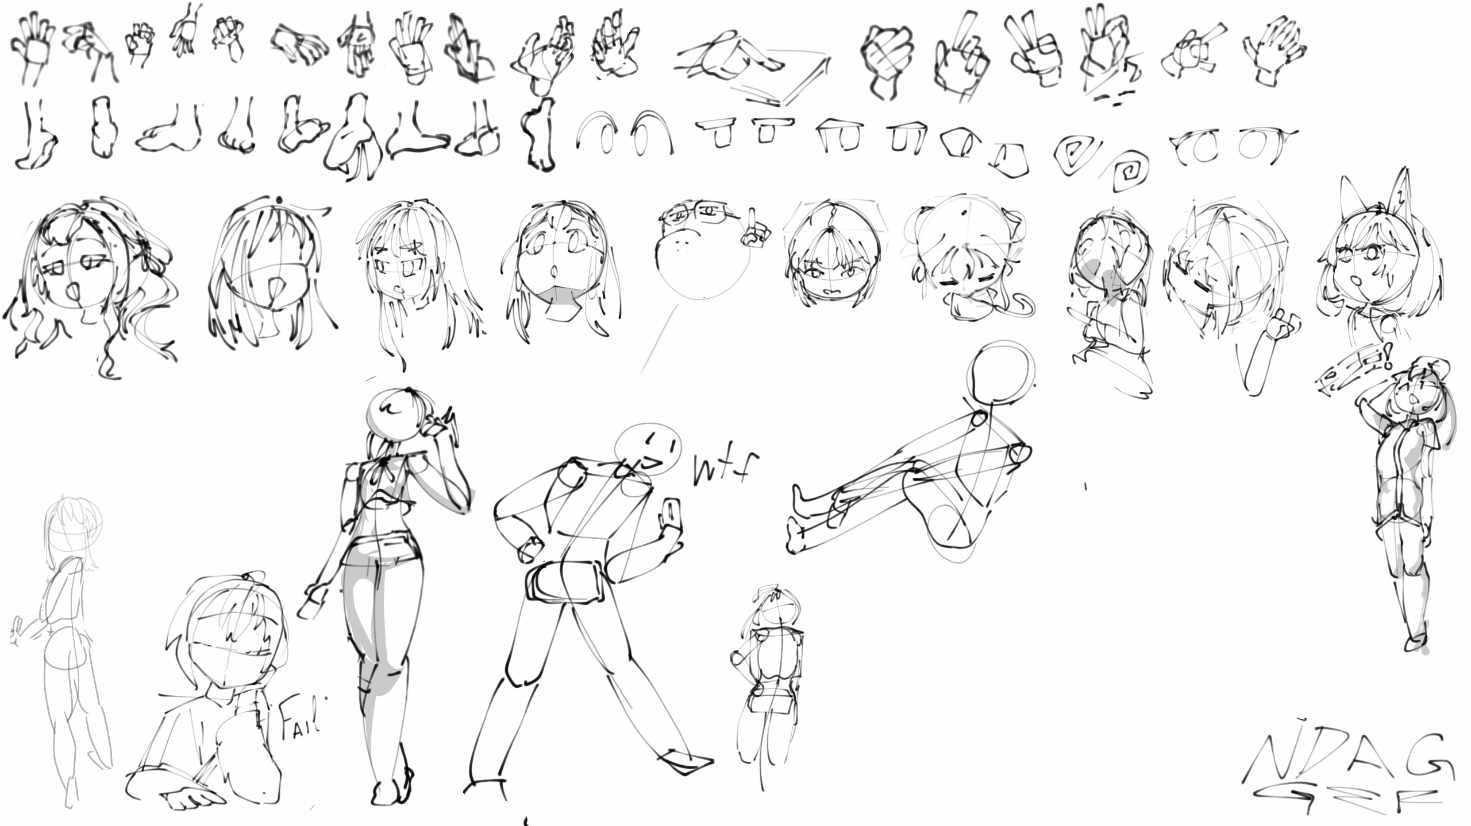 wtf
FAIL
NDAG
GER